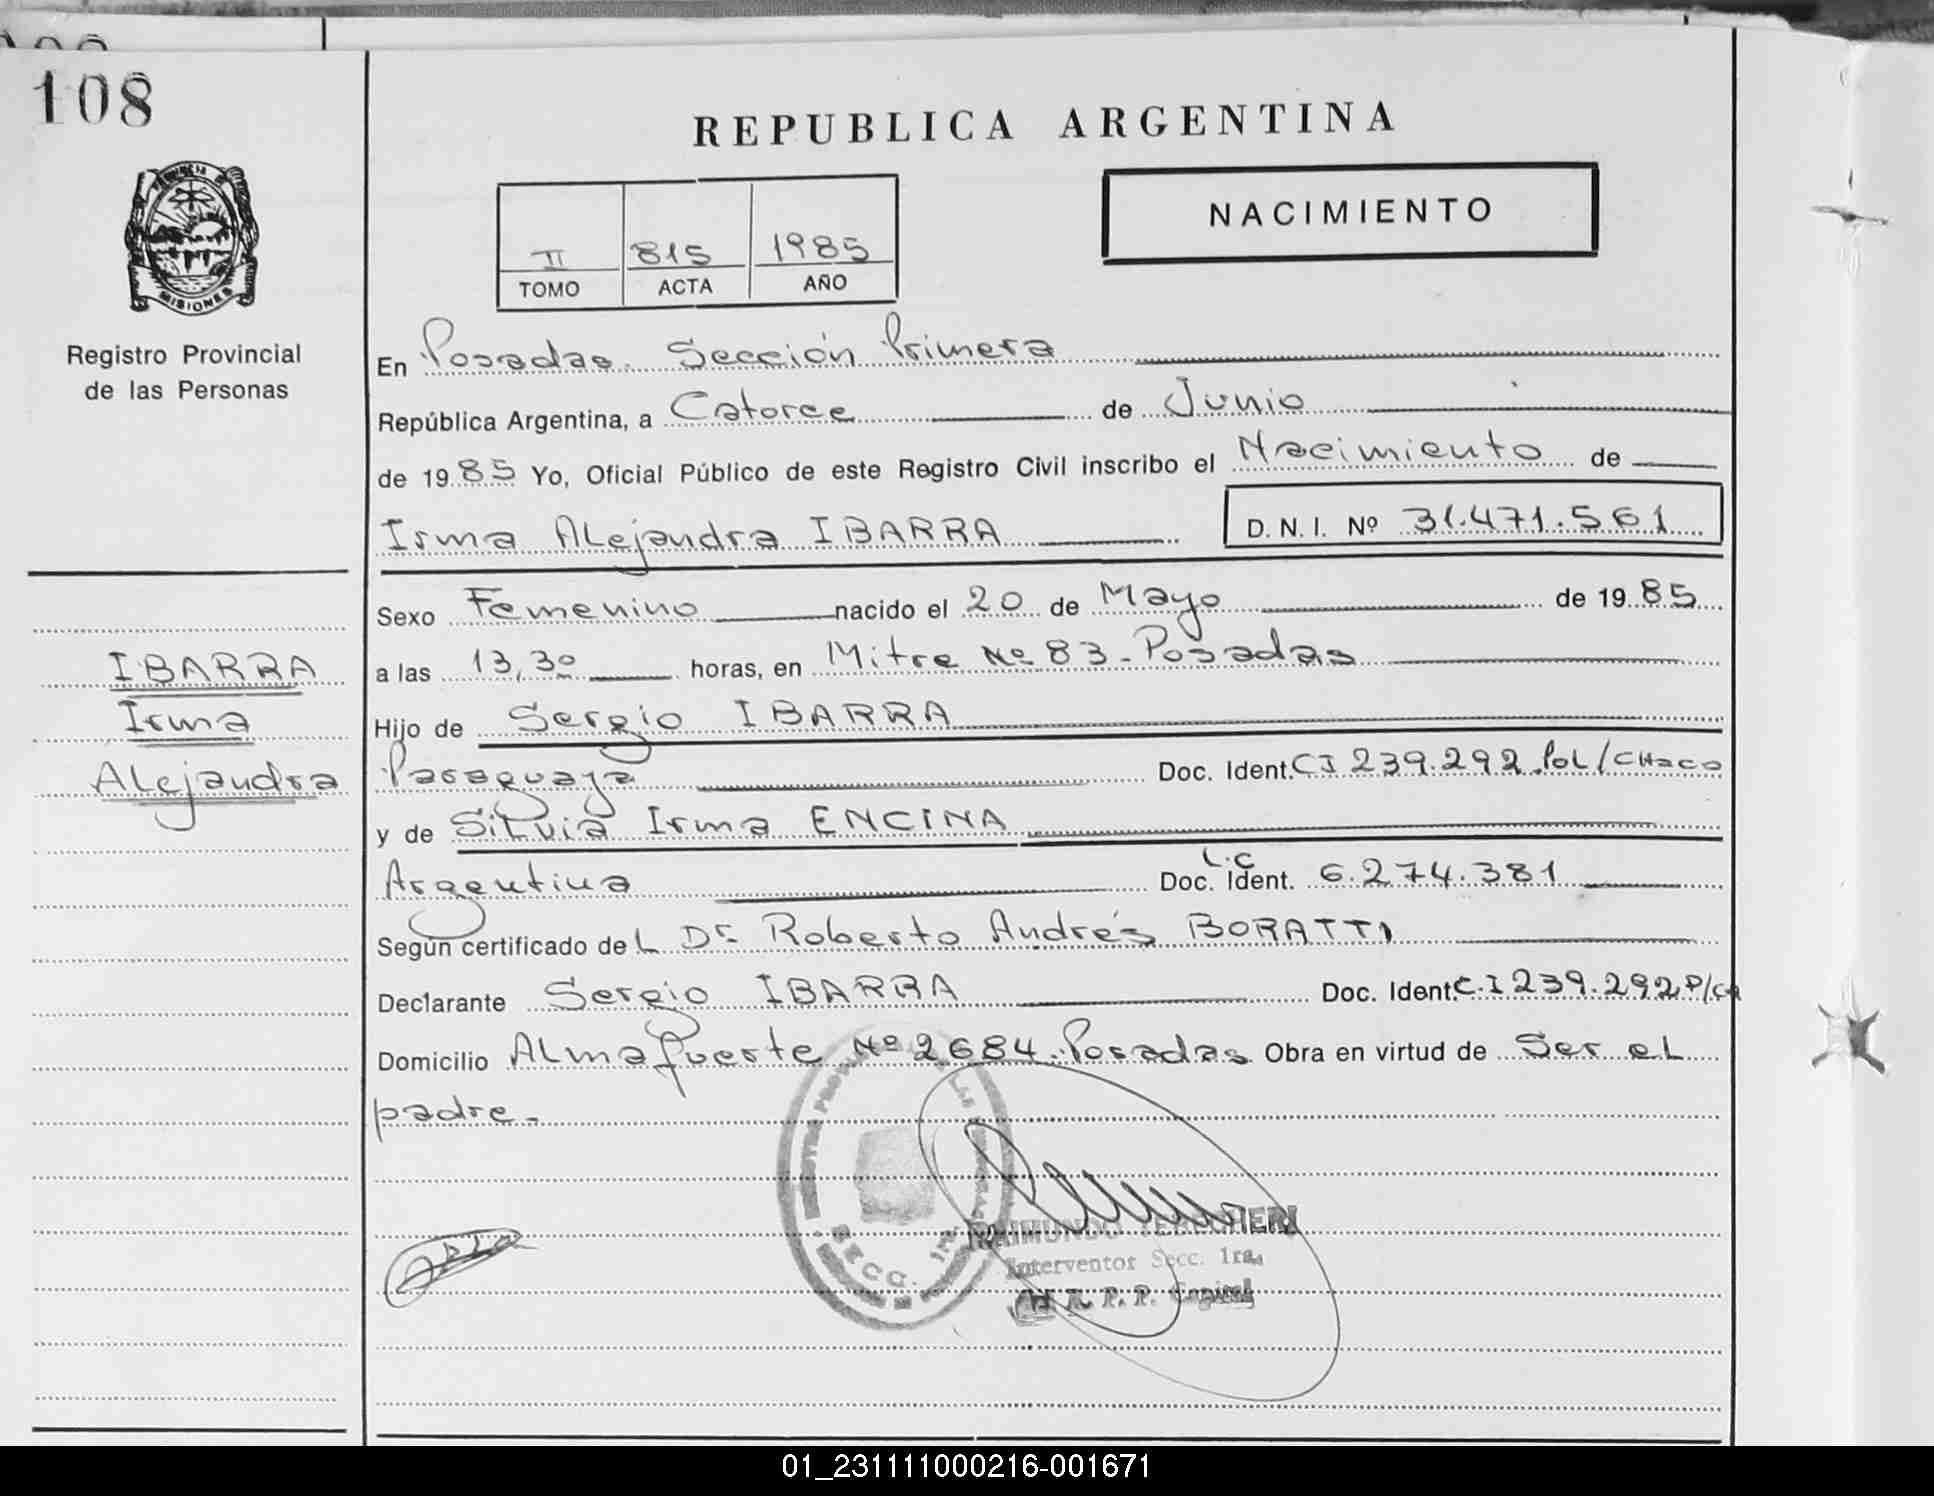 108
REPUBLICA ARGENTINA
NACIMIENTO
II 815 1985
TOMO ACTA AÑO
PROVINCIA
MISIONES
Registro Provincial
de las Personas
En Posadas. Sección Primera
República Argentina, a Catorce de Junio
de 1985 Yo, Oficial Público de este Registro Civil inscribo el Nacimiento de
Irma Alejandra IBARRA D. N. I. Nº 31.471.561
Sexo Femenino nacido el 20 de Mayo de 1985
a las 13,30 horas, en Mitre Nº 83 - Posadas
Hijo de Sergio IBARRA
Paraguaya Doc. Ident. CI 239.292 Pol/CHaco
y de Silvia Irma ENCINA
Argentina Doc. Ident. L.C 6.274.381
Según certificado del Dr Roberto Andrés BORATTI
Declarante Sergio IBARRA Doc. Ident. C.I 239.292 P/CH
Domicilio Almafuerte Nº 2684. Posadas Obra en virtud de Ser el
padre.-
IBARRA
Irma
Alejandra
SECC. 1ra
RAIMUNDO
Interventor Secc. 1ra.
R. P. P. Capital
01_231111000216-001671